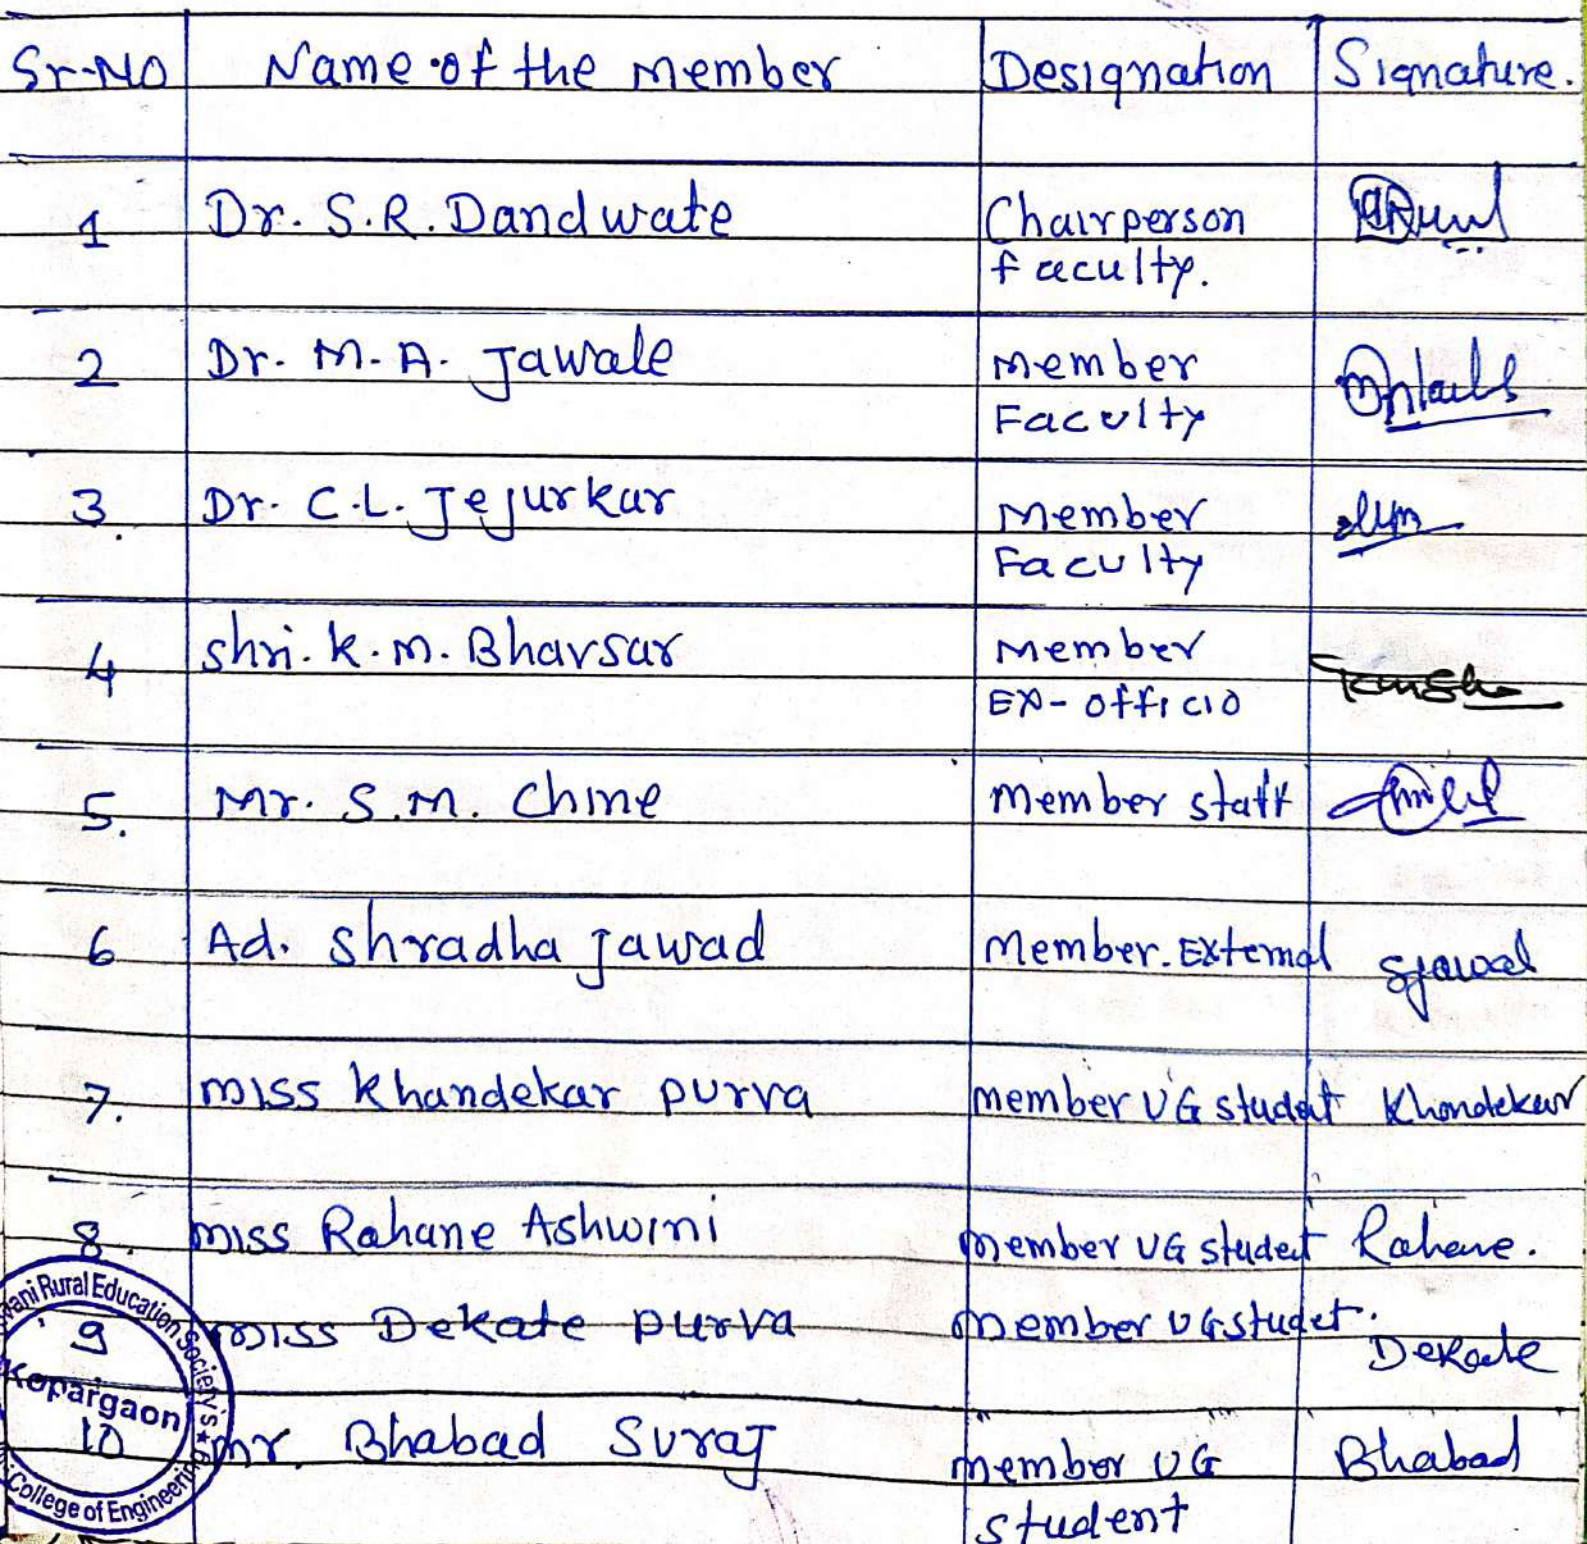 Sr-No Name of the member Designation Signature.
1 Dr. S.R. Dandwate Chairperson
faculty.
2 Dr. M.A. Jawale Member
Faculty
3. Dr. C.L. Jejurkar Member
Faculty
4 shri. K.M. Bhavsar Member
EX-officio
5. Mr. S.M. Chine Member staff
6 Ad. Shradha Jawad Member. External
7. Miss Khandekar Purva member UG studet Khandekar
8. Miss Rahane Ashwini Member UG studet Rahane.
9 Miss Dekate Purva Member UG studet.
Dekate
10 Mr. Bhabad Suraj Member UG Bhabad
student
Rural Education Society's
Kopargaon
College of Engineering